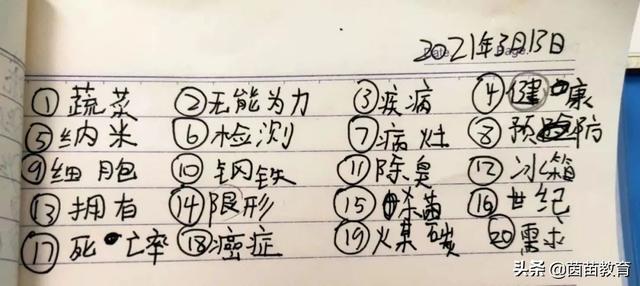 Date. Page.
2021年3月13日
①蔬菜 ②无能为力 ③疾病 ④健康
⑤纳米 ⑥检测 ⑦病灶 ⑧预防
⑨细胞 ⑩钢铁 ⑪除臭 ⑫冰箱
⑬拥有 ⑭限形 ⑮杀菌 ⑯世纪
⑰死亡率 ⑱癌症 ⑲煤碳 ⑳需求
头条 @茵苗教育